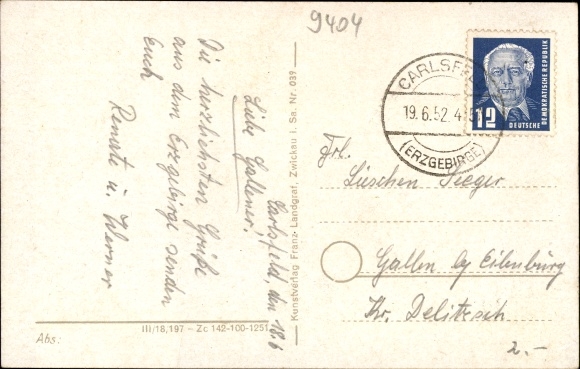 9404
Carlsfeld, den 18.6
Liebe Gallener!
Die herzlichsten Grüße
aus dem Erzgebirge senden
Euch
Renate u. Werner
Kunstverlag Franz Landgraf, Zwickau i. Sa. Nr. 039
CARLSFE
19.6.52.4
(ERZGEBIRGE)
DEUTSCHE
DEMOKRATISCHE REPUBLIK
12
Frl.
Lieschen Seeger
Gallen by Eilenburg
Kr. Delitzsch
2.-
III/18,197 - Zc 142-100-1251
Abs: